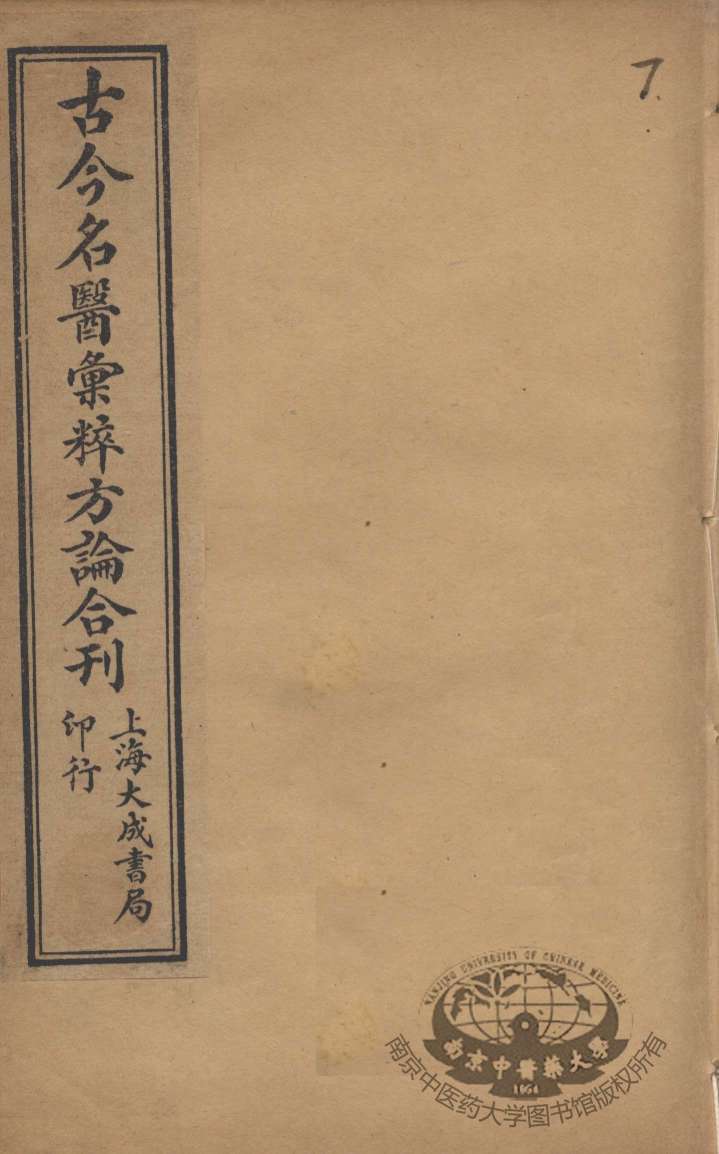 古今名醫彙粹方論合刊
上海大成書局
印行
7
NANJING UNIVERSITY OF CHINESE MEDICINE
南京中醫藥大學
1954
南京中医药大学图书馆版权所有